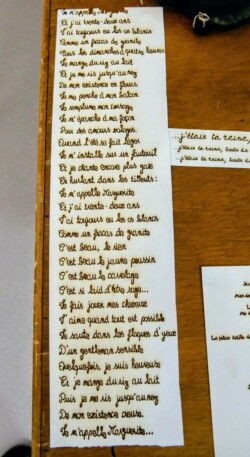 Je m'appelle Marguerite
Et j'ai trente-deux ans
J'ai toujours eu les os blancs
Comme un fracas de granite
Tous les dimanches à quatre heures
Je mange du riz au lait
Et je me ris jusqu'au nez
De mon existence en fleurs.
Je me penche à mon balcon
Je remplume mon corsage
Je m'épanche à ma façon
Pour des amours
Quand l'été se fait léger
Je m'installe sur un fauteuil
Et je chante encore plus gaie
En hurlant dans les tilleuls :
Je m'appelle Marguerite
Et j'ai trente-deux ans
J'ai toujours eu les os blancs
Comme un fracas de granite
C'est beau, le rien
C'est beau le jaune poussin
C'est beau le cavelage
C'est si laid d'être sage...
Je fais jouer mes cheveux
J'aime quand tout est possible
Je saute dans les flaques d'yeux
D'un gentleman sensible
Quelquefois, je suis heureuse
Et je mange du riz au lait
Puis je me ris jusqu'au nez
De mon existence creuse.
Je m'appelle Marguerite...
j'étais la reine,
j'étais la reine, toute
j'étais la reine, toute